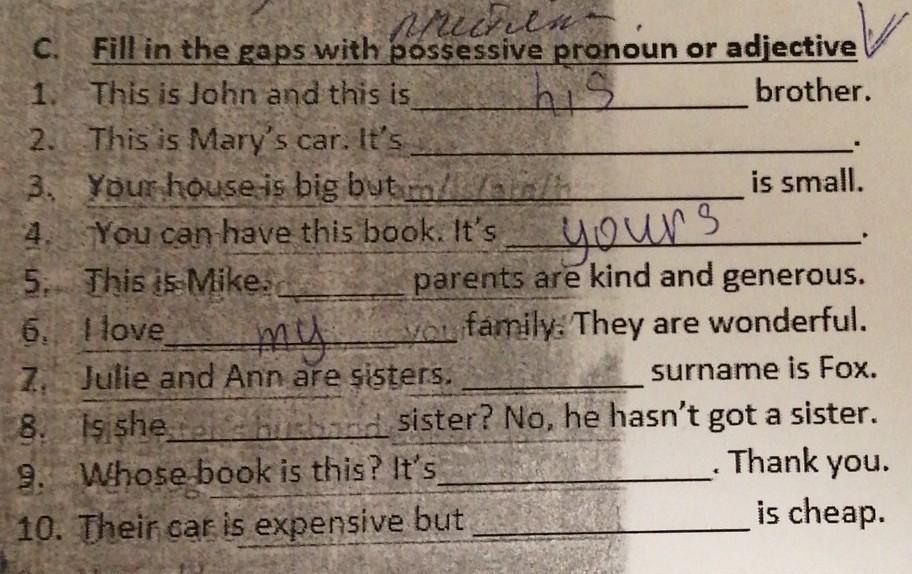 C. Fill in the gaps with possessive pronoun or adjective
1. This is John and this is his brother.
2. This is Mary's car. It's .
3. Your house is big but is small.
4. You can have this book. It's yours.
5. This is Mike. parents are kind and generous.
6. I love my family. They are wonderful.
7. Julie and Ann are sisters. surname is Fox.
8. Is she sister? No, he hasn't got a sister.
9. Whose book is this? It's . Thank you.
10. Their car is expensive but is cheap.